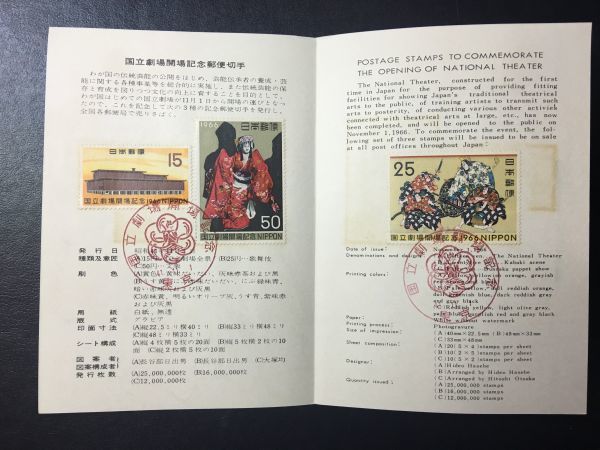 国立劇場開場記念郵便切手
わが国の伝統芸能の公開をはじめ、芸能伝承者の養成・芸
能に関する各種事業等を総合的に実施し、また伝統芸能の保
存と育成を図りつつ文化の向上に資することを目的として、
わが国はじめての国立劇場が11月1日から開場の運びとなっ
たので、これを記念して次の3種の記念郵便切手を発行し、
全国各郵便局で売りさばく。
日本郵便
15
国立劇場開場記念1966 NIPPON
1966 日本郵便
50
国立劇場開場記念NIPPON
国立劇場開場
発行日
種類及意匠
(B)25円…歌舞伎
(C)50円
刷色
用紙 白紙、無透
版式 グラビア
印面寸法 (A)縦22.5ミリ横40ミリ (B)縦33ミリ横48ミリ
(C)縦48ミリ横33ミリ
シート構成 (A)縦4枚横5枚の20面 (B)縦5枚横2枚の10
面 (C)縦2枚横5枚の10面
図案者 (A)長谷部日出男
図案構成者 (B)長谷部日出男 (C)大塚均
発行枚数 (A)25,000,000枚 (B)16,000,000枚
(C)12,000,000枚
POSTAGE STAMPS TO COMMEMORATE
THE OPENING OF NATIONAL THEATER
The National Theater, constructed for the first
time in Japan for the purpose of providing fitting
facilities for showing Japan's traditional theatrical
arts to the public, of training artists to transmit such
arts to posterity, of conducting various other activiek
connected with theatrical arts at large, etc., has now
been completed, and will be opened to the public on
November 1, 1966. To commemorate the event, the fol-
lowing set of three stamps will be issued to be on sale
at all post offices throughout Japan:
25
日本郵便
国立劇場開場記念1966 NIPPON
国立劇場開場
Date of issue: November 1, 1966
Denominations and designs: The National Theater
Kabuki scene
Bunraku puppet show
Printing colors:
Paper: White without watermark
Printing process: Photogravure
Size of impression: (A) 40mm×22.5mm (B) 48mm×33mm
(C) 33mm×48mm
Sheet composition: (A) 20 (5×4) stamps per sheet
(B) 10 (2×5) stamps per sheet
(C) 10 (5×2) stamps per sheet
Designer: (A) Hideo Hasebe
(B) Arranged by Hideo Hasebe
(C) Arranged by Hitoshi Otsuka
Quantity issued: (A) 25,000,000 stamps
(B) 16,000,000 stamps
(C) 12,000,000 stamps